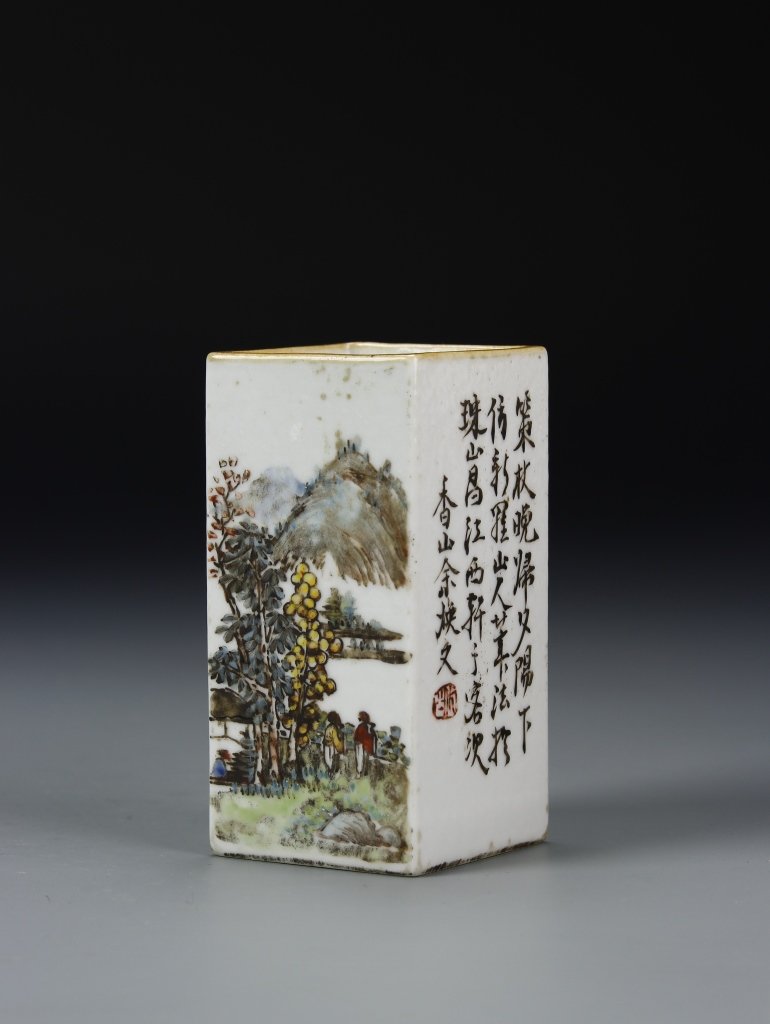 策杖晚歸夕陽下
仿新羅山人廿華法於
珠山昌江西軒之客次
香山余煥文